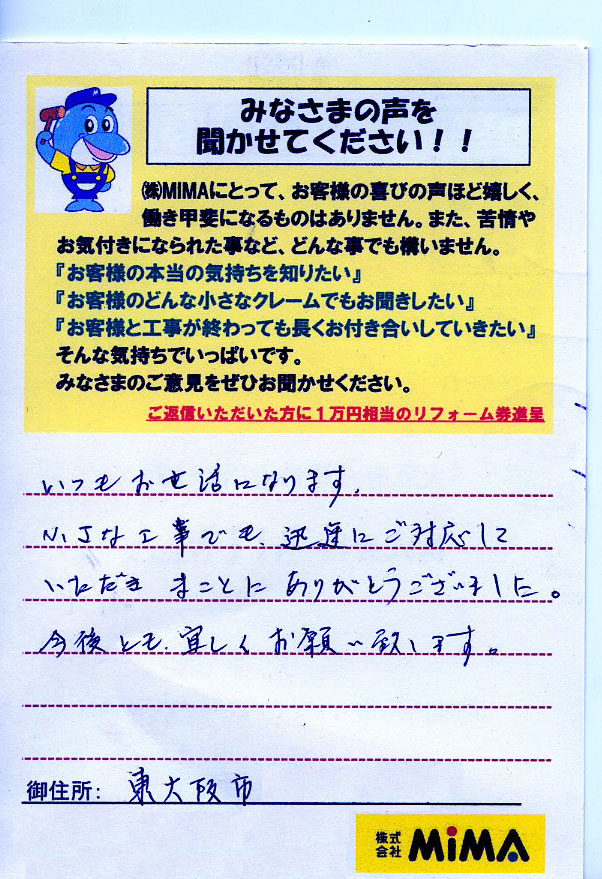 みなさまの声を
聞かせてください！！
㈱MIMAにとって、お客様の喜びの声ほど嬉しく、
働き甲斐になるものはありません。また、苦情や
お気付きになられた事など、どんな事でも構いません。
『お客様の本当の気持ちを知りたい』
『お客様のどんな小さなクレームでもお聞きしたい』
『お客様と工事が終わっても長くお付き合いしていきたい』
そんな気持ちでいっぱいです。
みなさまのご意見をぜひお聞かせください。
ご返信いただいた方に１万円相当のリフォーム券進呈
いつもお世話になります。
小さな工事でも、迅速にご対応して
いただき まことに ありがとうございました。
今後とも、宜しくお願い致します。
御住所: 東大阪市
株式会社 MiMA